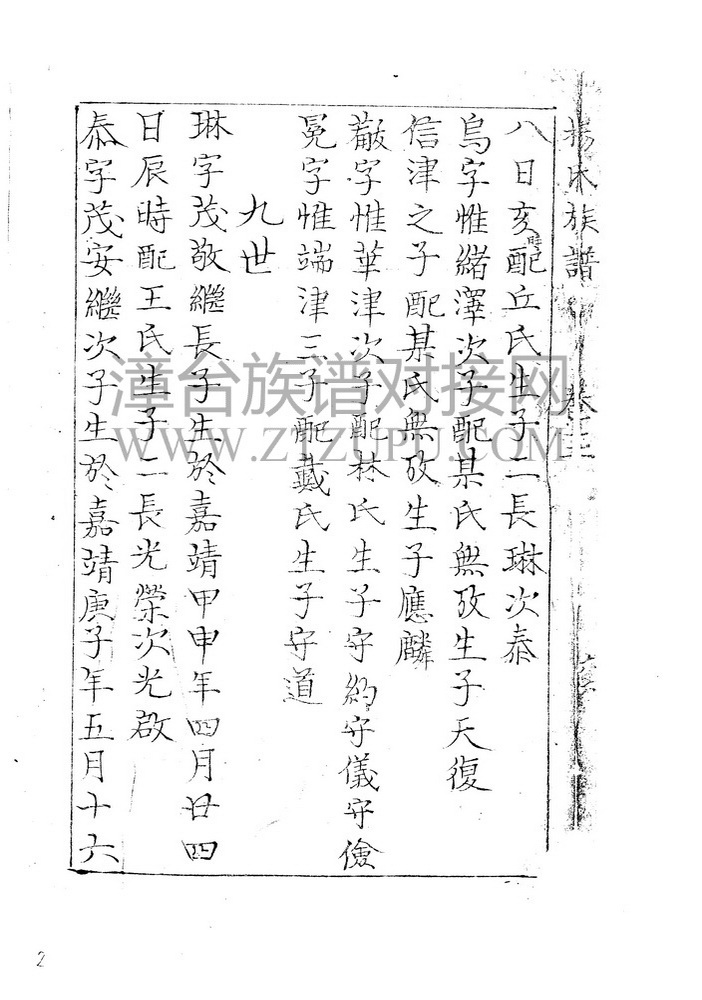 楊氏族譜 卷三
八日亥時配丘氏生子二長琳次泰
烏字惟緒澤次子配某氏無攷生子天復
信津之子配某氏無攷生子應麟
黻字惟華津次子配林氏生子守約守儀守儉
冕字惟端津三子配戴氏生子守道
九世
琳字茂敬繼長子生於嘉靖甲申年四月廿四
日辰時配王氏生子二長光榮次光啟
泰字茂安繼次子生於嘉靖庚子年五月十六
漳台族谱对接网
WWW.ZTZUPU.COM
2